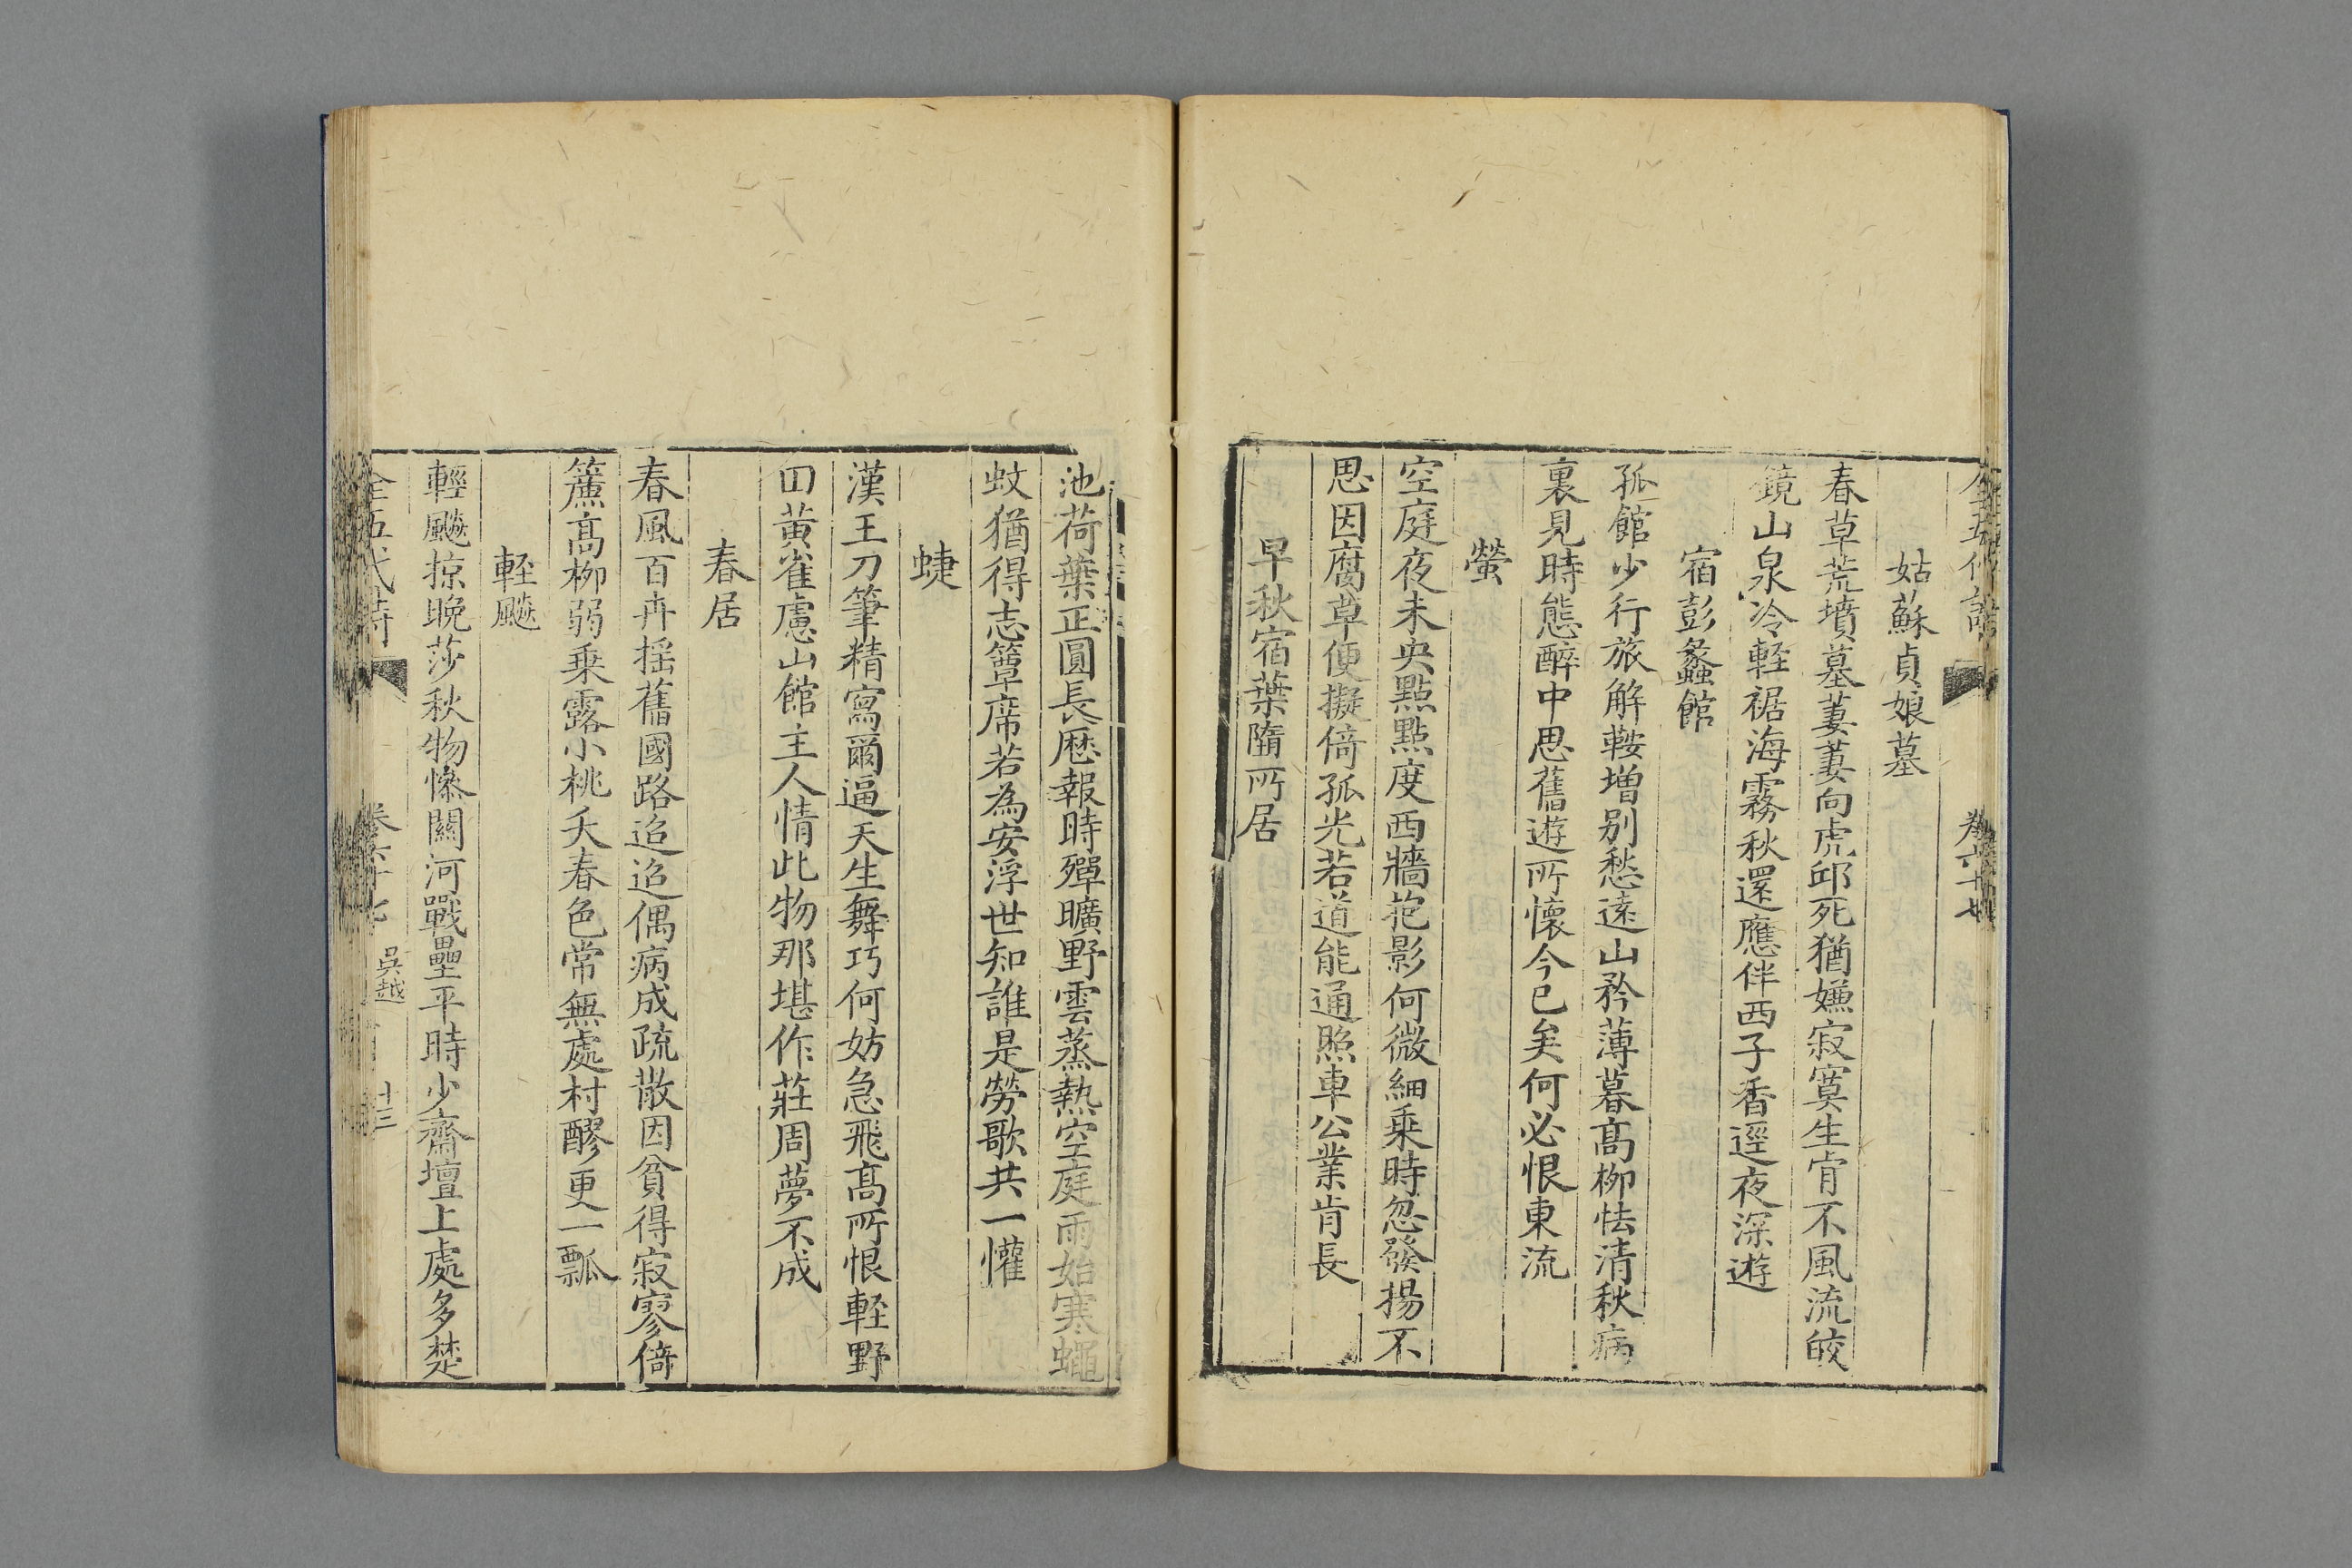 全五代詩
卷六十七
姑蘇貞娘墓
春草荒墳墓萋萋向虎邱死猶嫌寂寞生肯不風流皎
鏡山泉冷輕裾海霧秋還應伴西子香逕夜深遊
宿彭蠡館
孤館少行旅解鞍增別愁遠山矜薄暮高柳怯清秋病
裏見時態醉中思舊遊所懷今已矣何必恨東流
螢
空庭夜未央點點度西牆抱影何微細乘時忽發揚不
思因腐草便擬倚孤光若道能通照車公業肯長
早秋宿葉隋所居
池荷葉正圓長歷報時殫曠野雲蒸熱空庭雨始寒蠅
蚊猶得志簟席若為安浮世知誰是勞歌共一懽
蜨
漢王刀筆精寫爾逼天生舞巧何妨急飛高所恨輕野
田黃雀慮山館主人情此物那堪作莊周夢不成
春居
春風百卉搖舊國路迢迢偶病成疏散因貧得寂寥倚
簾高柳弱乘露小桃夭春色常無處村醪更一瓢
輕飈
輕飈掠晚莎秋物慘關河戰壘平時少齋壇上處多楚
全五代詩
卷六十七
吳越
十三